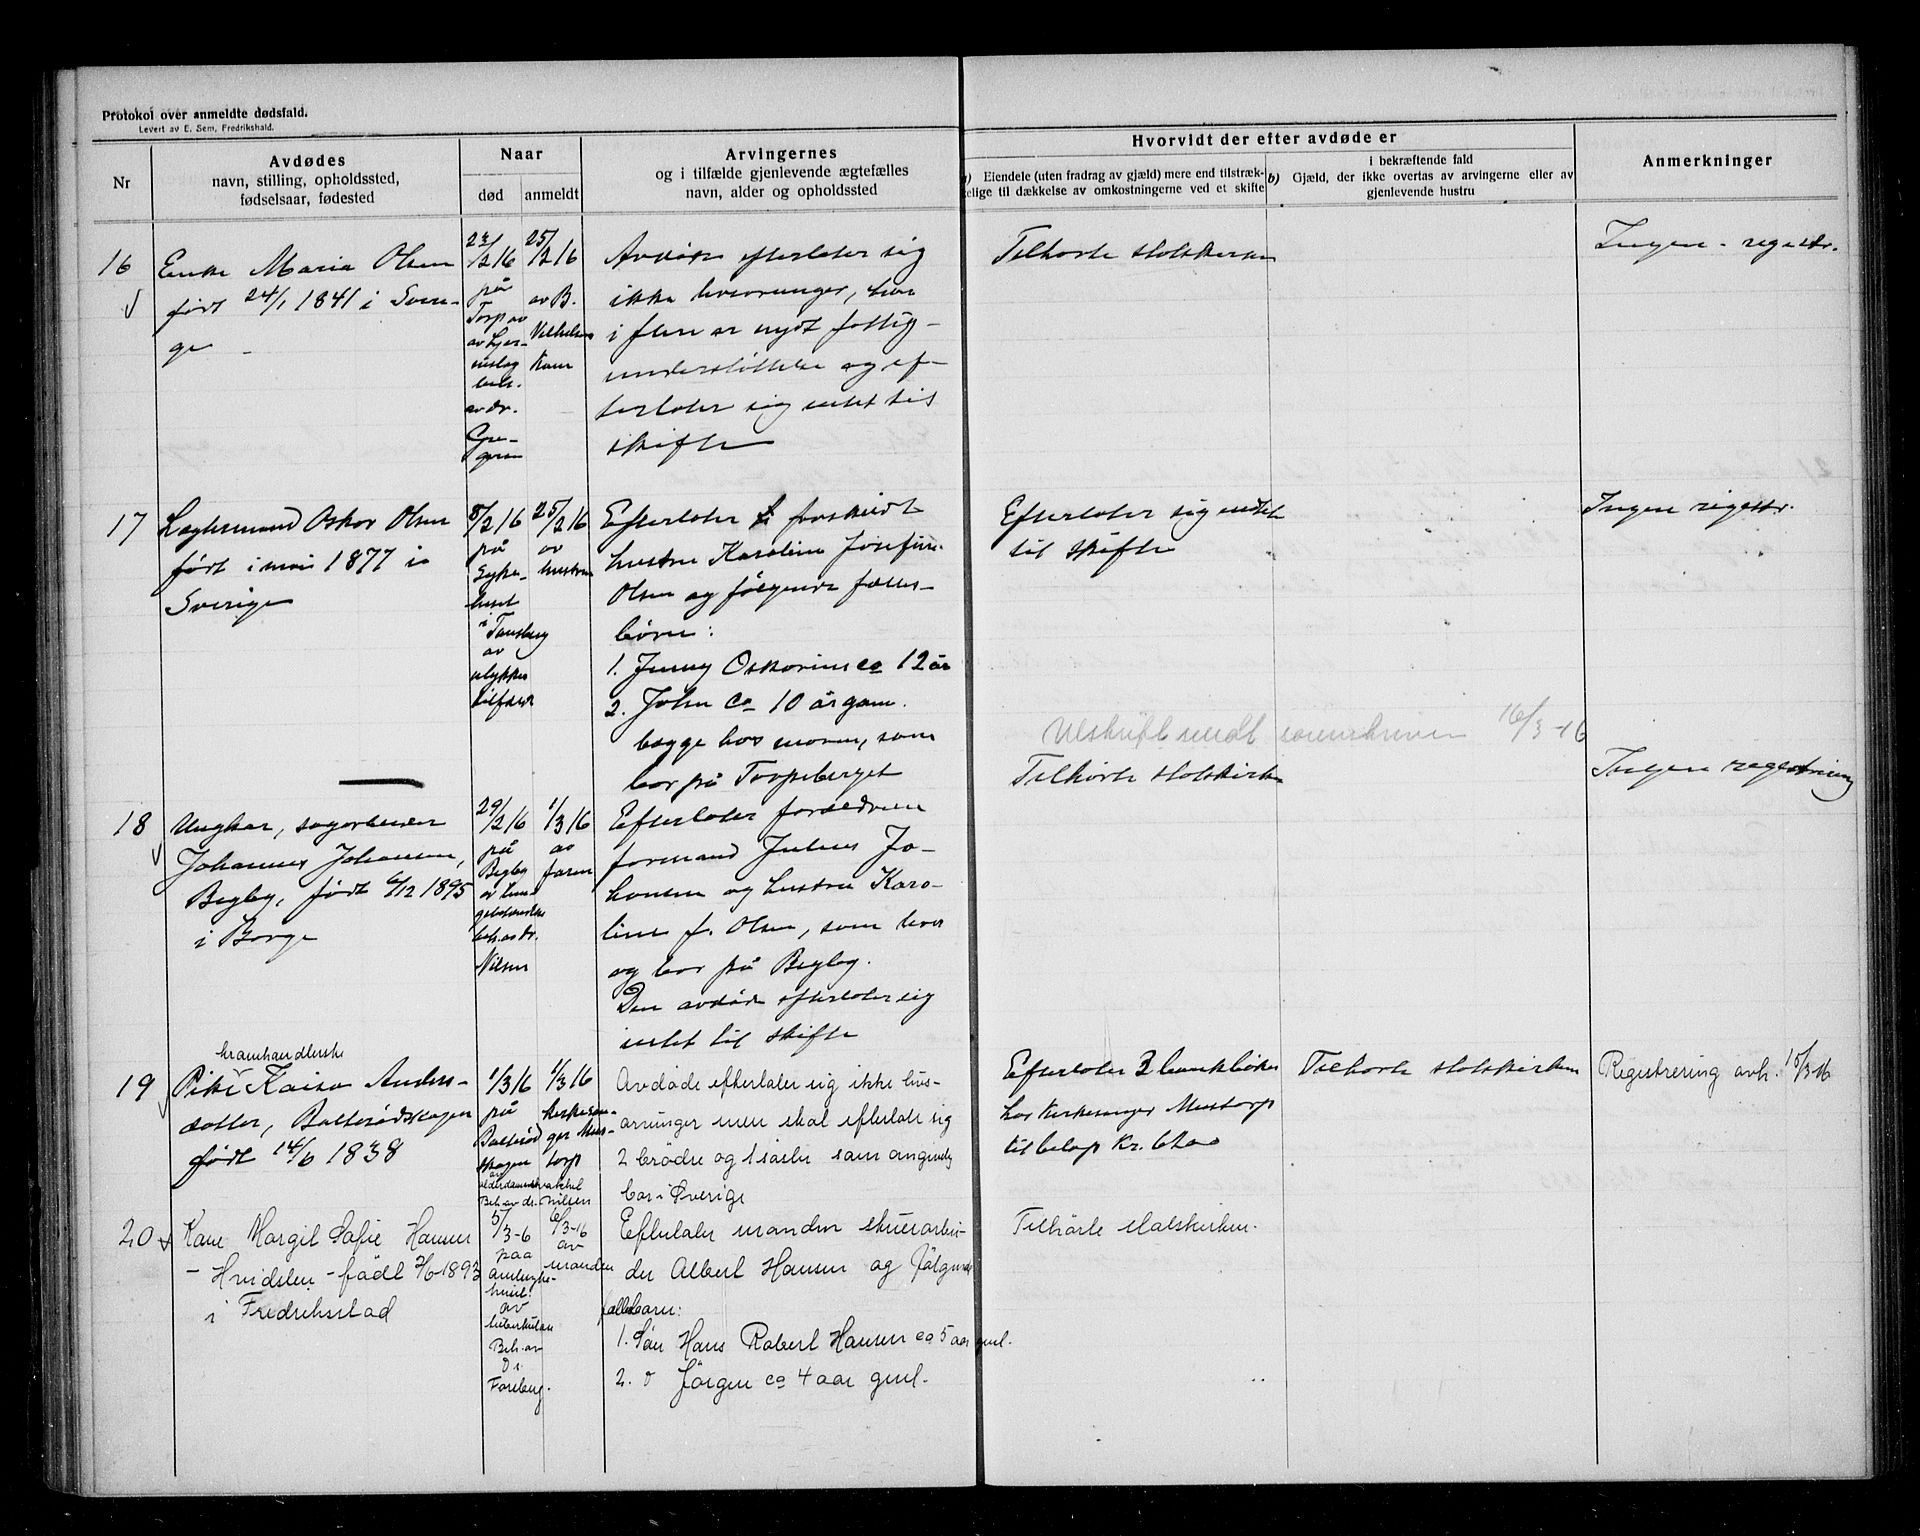 Protokol over anmeldte dødsfald.
Levert av E. Sem, Fredrikshald.
Nr
Avdødes
navn, stilling, opholdssted,
fødselsaar, fødested
Naar
død
anmeldt
Arvingernes
og i tilfælde gjenlevende ægtefælles
navn, alder og opholdssted
Hvorvidt der efter avdøde er
Eiendele (uten fradrag av gjæld) mere end tilstræk-
kelige til dækkelse av omkostningerne ved et skifte
b) i bekræftende fald
Gjæld, der ikke overtas av arvingerne eller av
gjenlevende hustru
Anmerkninger
16
Enke Maria Olsen
født 24/1 1841 i Sveri-
ge
23/2 16
på
Torp av
av
avdr.
25/2 16
av B.
Avdøde efterlater sig
ikke livsarvinger, har
i flere år nydt fattig-
understøttelse og ef-
terlater sig intet til
skifte
Tilhørte statskirken
Ingen registr.
17
Løgtermand Oskar Olsen
født i mai 1877 i
Sverige
8/2 16
på
Syke-
huset
i Tønsberg
av
ulykkes
tilfælde
25/2 16
av
hustruen
Efterlater fraskildt
hustru Karoline Josefine
Olsen og følgende fælles-
børn:
1. Jenny Oskarine ca 12 år
2. John ca 10 år gam.
begge hos moren, som
bor på Torpeberget
Efterlater sig intet
til skifte
Utskrift sendt 16/3-16
Ingen registr.
18
Ungkar, sagarbeider
Johannes Johansen,
Begby, født 6/12 1895
i Borge
29/2 16
på
Begby
av
beh. av dr.
Nilsen
1/3 16
av
faren
Efterlater forældrene
formand Julius Jo-
hansen og hustru Karo-
line f. Olsen, som lever
og bor på Begby.
Den avdøde efterlater sig
intet til skifte
Tilhørte statskirken
Ingen registrering
19
kramhandlerske
Pike Kaisa Anders-
datter, Balterødskogen
født 14/6 1838
1/3 16
på
Balterød
skogen
av
alderdomssvakhet
Beh. av dr. Nilsen
1/3 16
kirkesan-
ger Mus-
torp
Avdøde efterlater sig ikke livs-
arvinger men skal efterlate sig
2 brødre og 1 søster som angivelig
bor i Sverige
Efterlater 3 bankbøker
hos kirkesanger Mustorp
til beløp Kr. 6200
Tilhørte statskirken
Registrering avh. 15/3-16
20
Kone Margit Sofie Hansen
- Hvidsten - født 2/6-1893
i Fredrikstad
5/3-6
paa
av
tuberkulose
Beh. av
Dr.
Forsberg.
6/3-16
av
manden
Efterlater manden skuearbei-
der Albert Hansen og følgende
fællesbarn:
1. Søn Hans Robert Hansen ca 5 aar gml.
2. d Jörgen ca 4 aar gml.
Tilhørte statskirken.